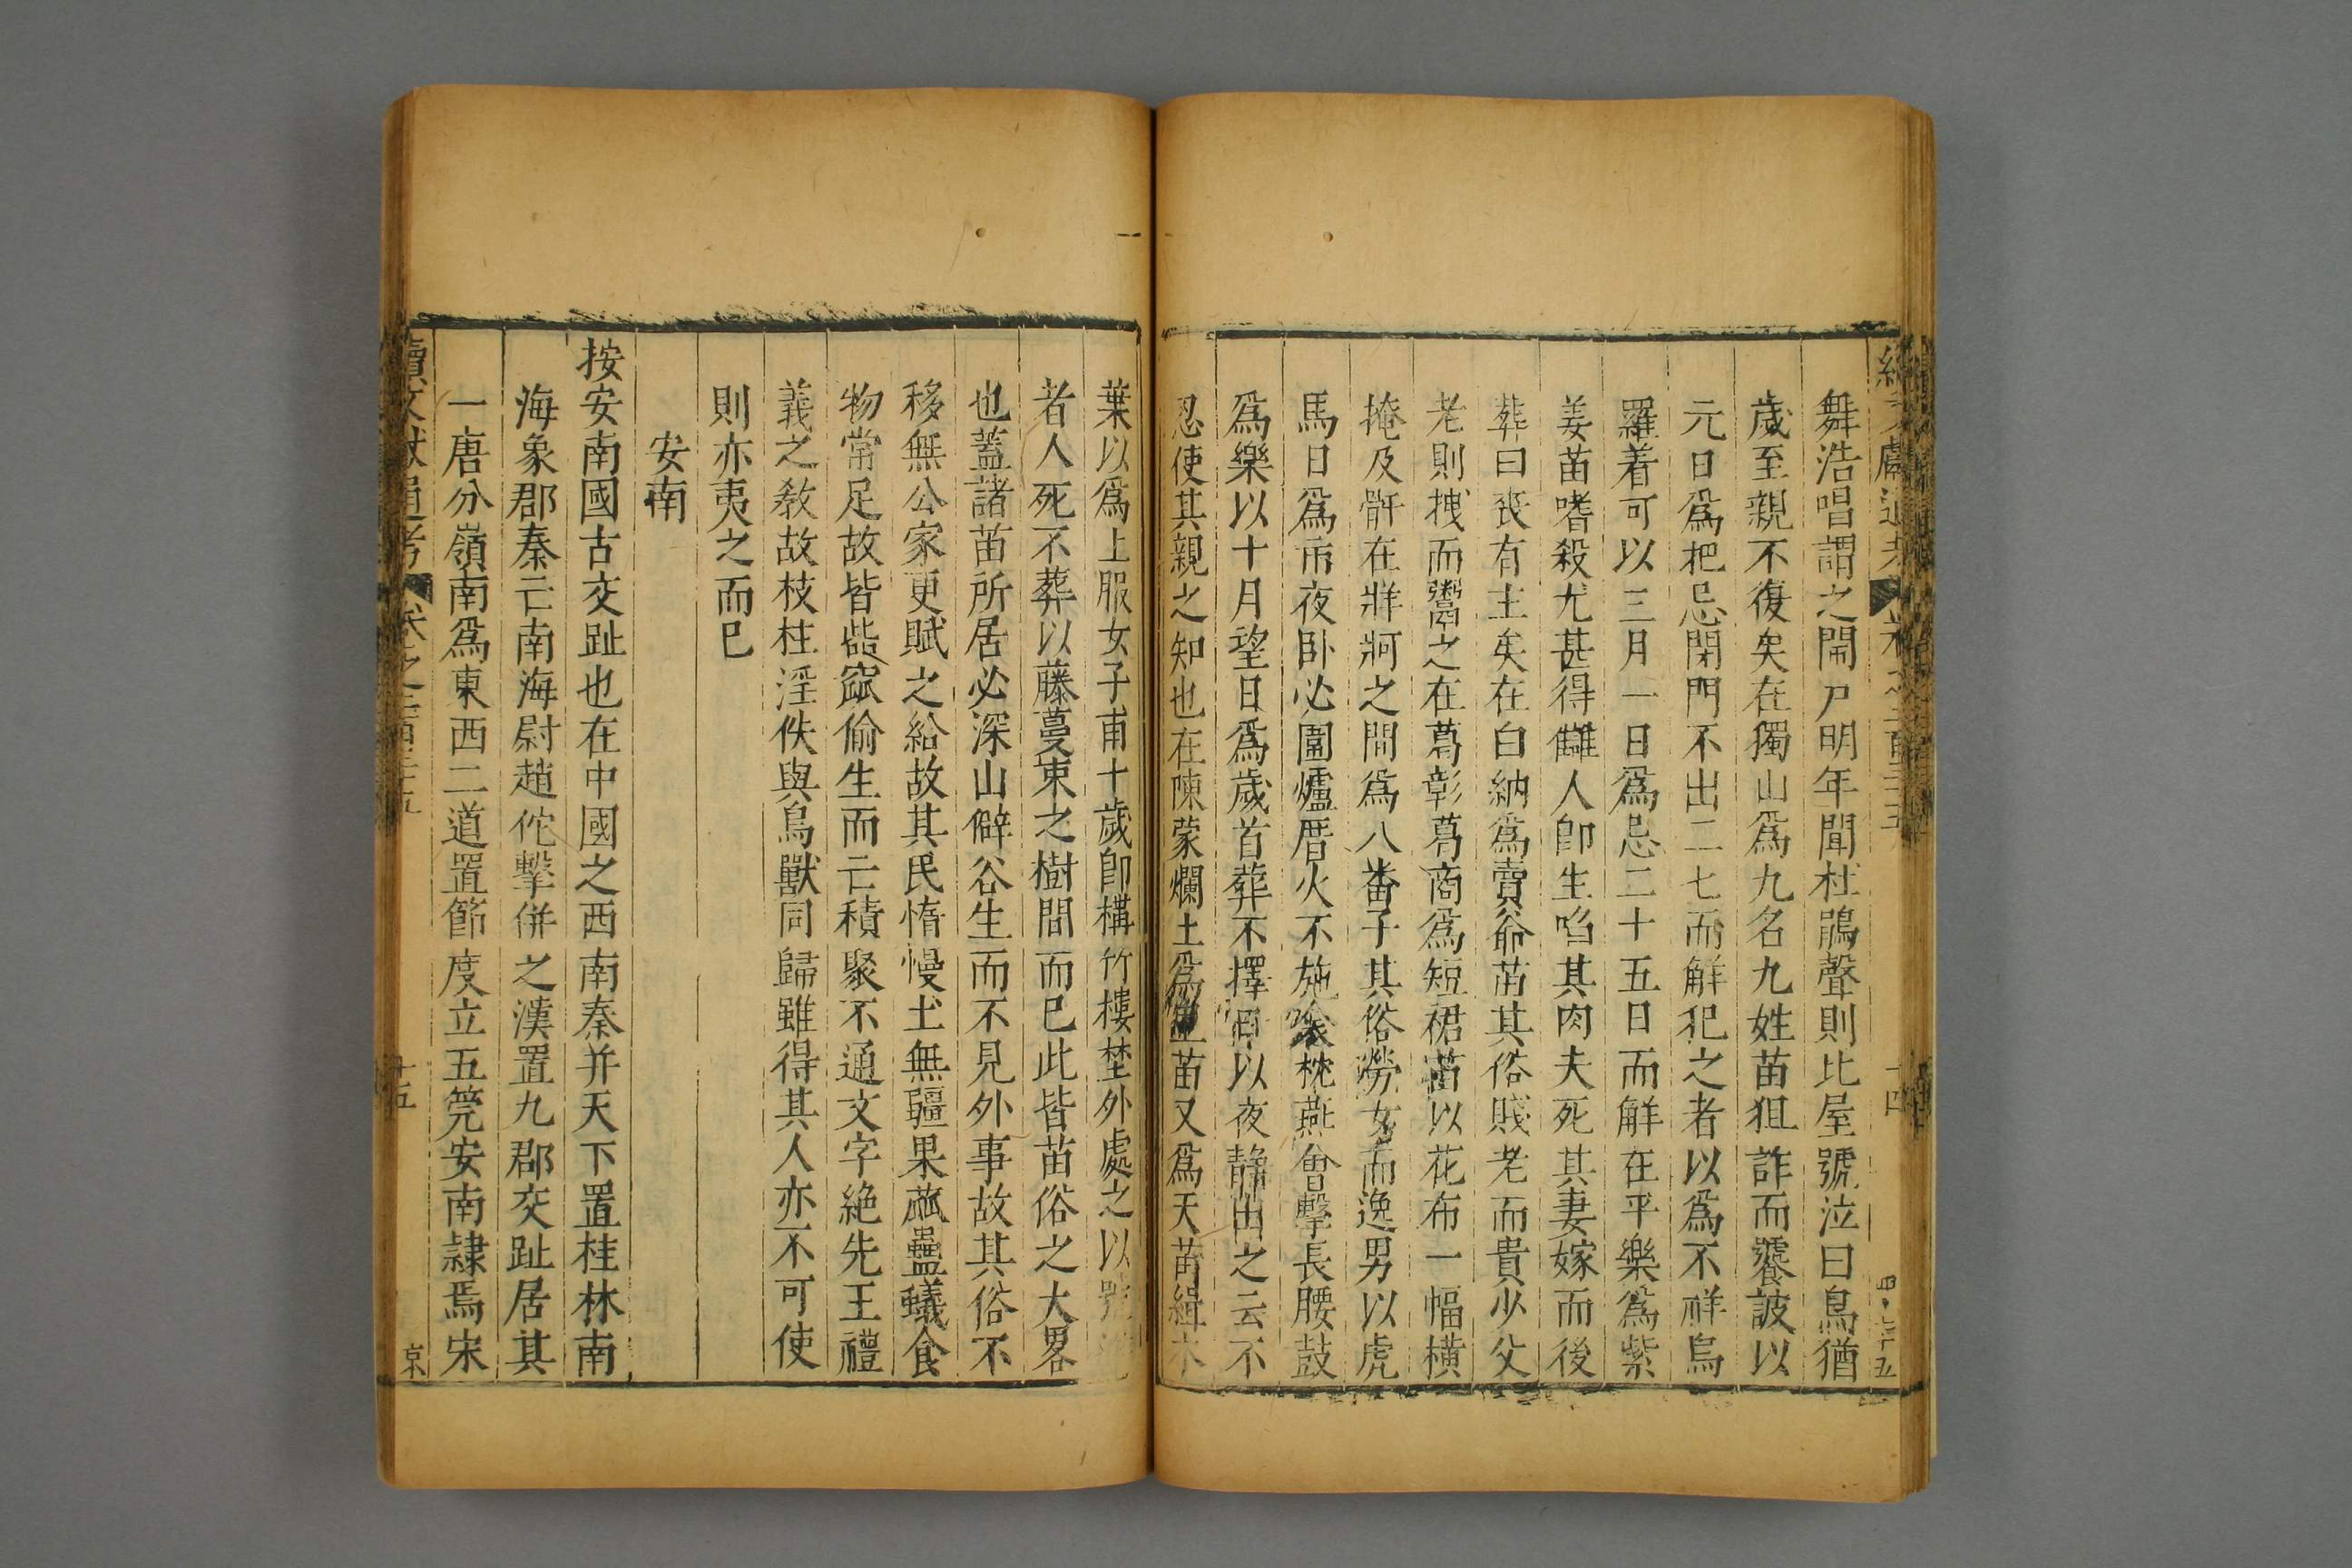 舞浩唱謂之鬧尸明年聞杜鵑聲則比屋號泣曰鳥猶
歲至親不復矣在獨山爲九名九姓苗狙詐而饕詖以
元日爲把忌閉門不出二七而解犯之者以爲不祥烏
羅着可以三月一日爲忌二十五日而解在平樂爲紫
姜苗嗜殺尤甚得讎人卽生啗其肉夫死其妻嫁而後
葬曰喪有主矣在白納爲賣爺苗其俗賤老而貴少父
老則拽而鬻之在葛彰葛商爲短裙苗以花布一幅橫
掩及骭在牂牁之間爲八番子其俗勞女而逸男以虎
馬日爲市夜卧必圍爐厝火不施衾枕燕會擊長腰鼓
爲樂以十月望日爲歲首葬不擇日以夜靜出之云不
忍使其親之知也在陳蒙爛土爲苗又爲天苗緝木
葉以爲上服女子甫十歲卽構竹樓埜外處之以
者人死不葬以藤蔓束之樹間而已此皆苗俗之大畧
也蓋諸苗所居必深山僻谷生而不見外事故其俗不
移無公家更賦之給故其民惰慢土無疆果蓏蠱蟻食
物常足故皆啙窳偷生而亡積聚不通文字絶先王禮
義之敎故枝柱淫佚與鳥獸同歸雖得其人亦不可使
則亦夷之而已
安南
按安南國古交趾也在中國之西南秦并天下置桂林南
海象郡秦亡南海尉趙佗擊併之漢置九郡交趾居其
一唐分嶺南爲東西二道置節度立五筦安南隷焉宋
續文獻通考 卷之二百三十五 十五 京